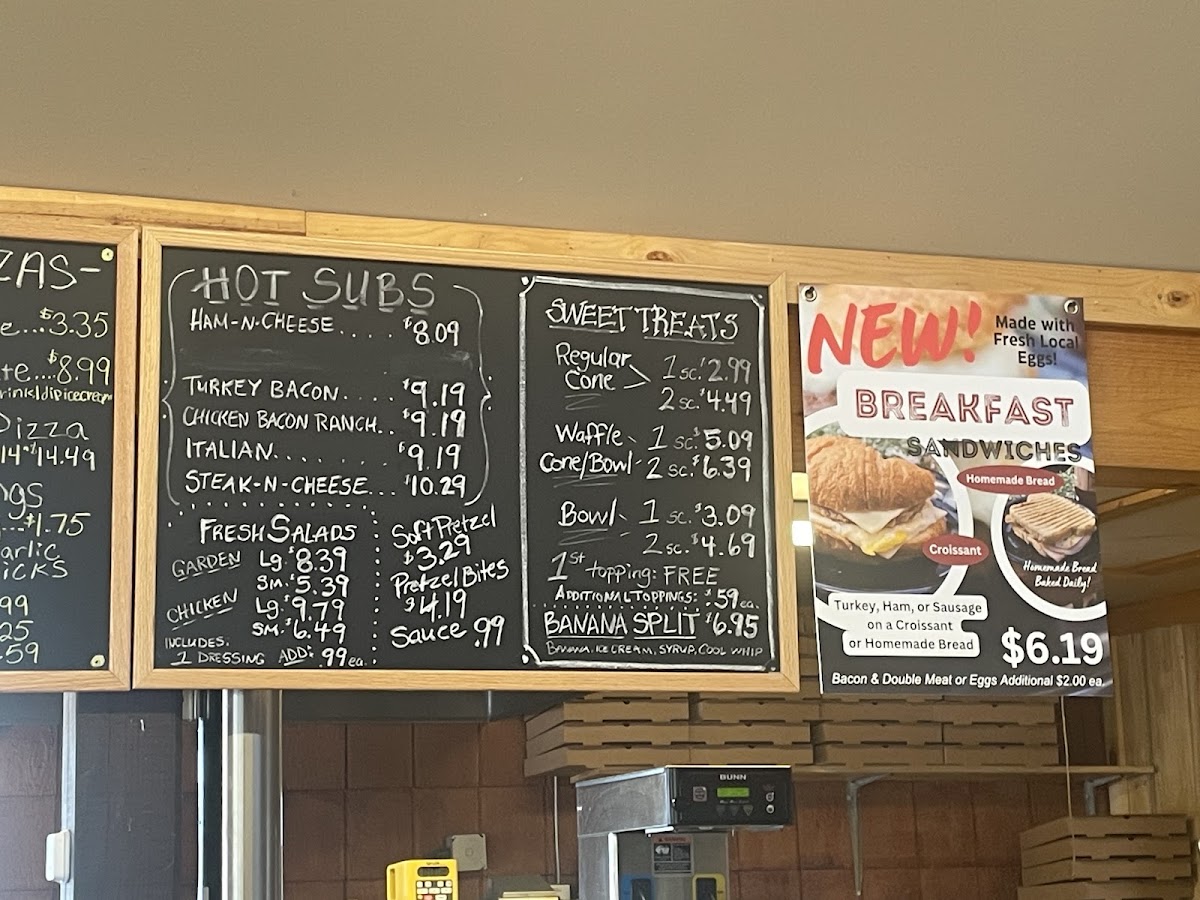 ZAS-
e...$3.35
te...$8.99
Pizza
14"$14.49
gs
...$1.75
arlic
icks
99
25
.59
HOT SUBS
HAM-N-CHEESE.... $8.09
TURKEY BACON.... $9.19
CHICKEN BACON RANCH.. $9.19
ITALIAN........ $9.19
STEAK-N-CHEESE... $10.29
FRESH SALADS
GARDEN Lg. $8.39
Sm. $5.39
CHICKEN Lg. $9.79
Sm. $6.49
INCLUDES:
1 DRESSING ADD: .99 ea.
Soft Pretzel
$3.29
Pretzel Bites
$4.19
Sauce .99
SWEET TREATS
Regular Cone 1 sc. $2.99
2 sc. $4.49
Waffle Cone/Bowl 1 sc. $5.09
2 sc. $6.39
Bowl 1 sc. $3.09
2 sc. $4.69
1st topping: FREE
ADDITIONAL TOPPINGS: $.59 ea.
BANANA SPLIT $6.95
BANANA, ICE CREAM, SYRUP, COOL WHIP
NEW!
Made with
Fresh Local
Eggs!
BREAKFAST
SANDWICHES
Homemade Bread
Croissant
Homemade Bread
Baked Daily!
Turkey, Ham, or Sausage
on a Croissant
or Homemade Bread
$6.19
Bacon & Double Meat or Eggs Additional $2.00 ea.
BUNN